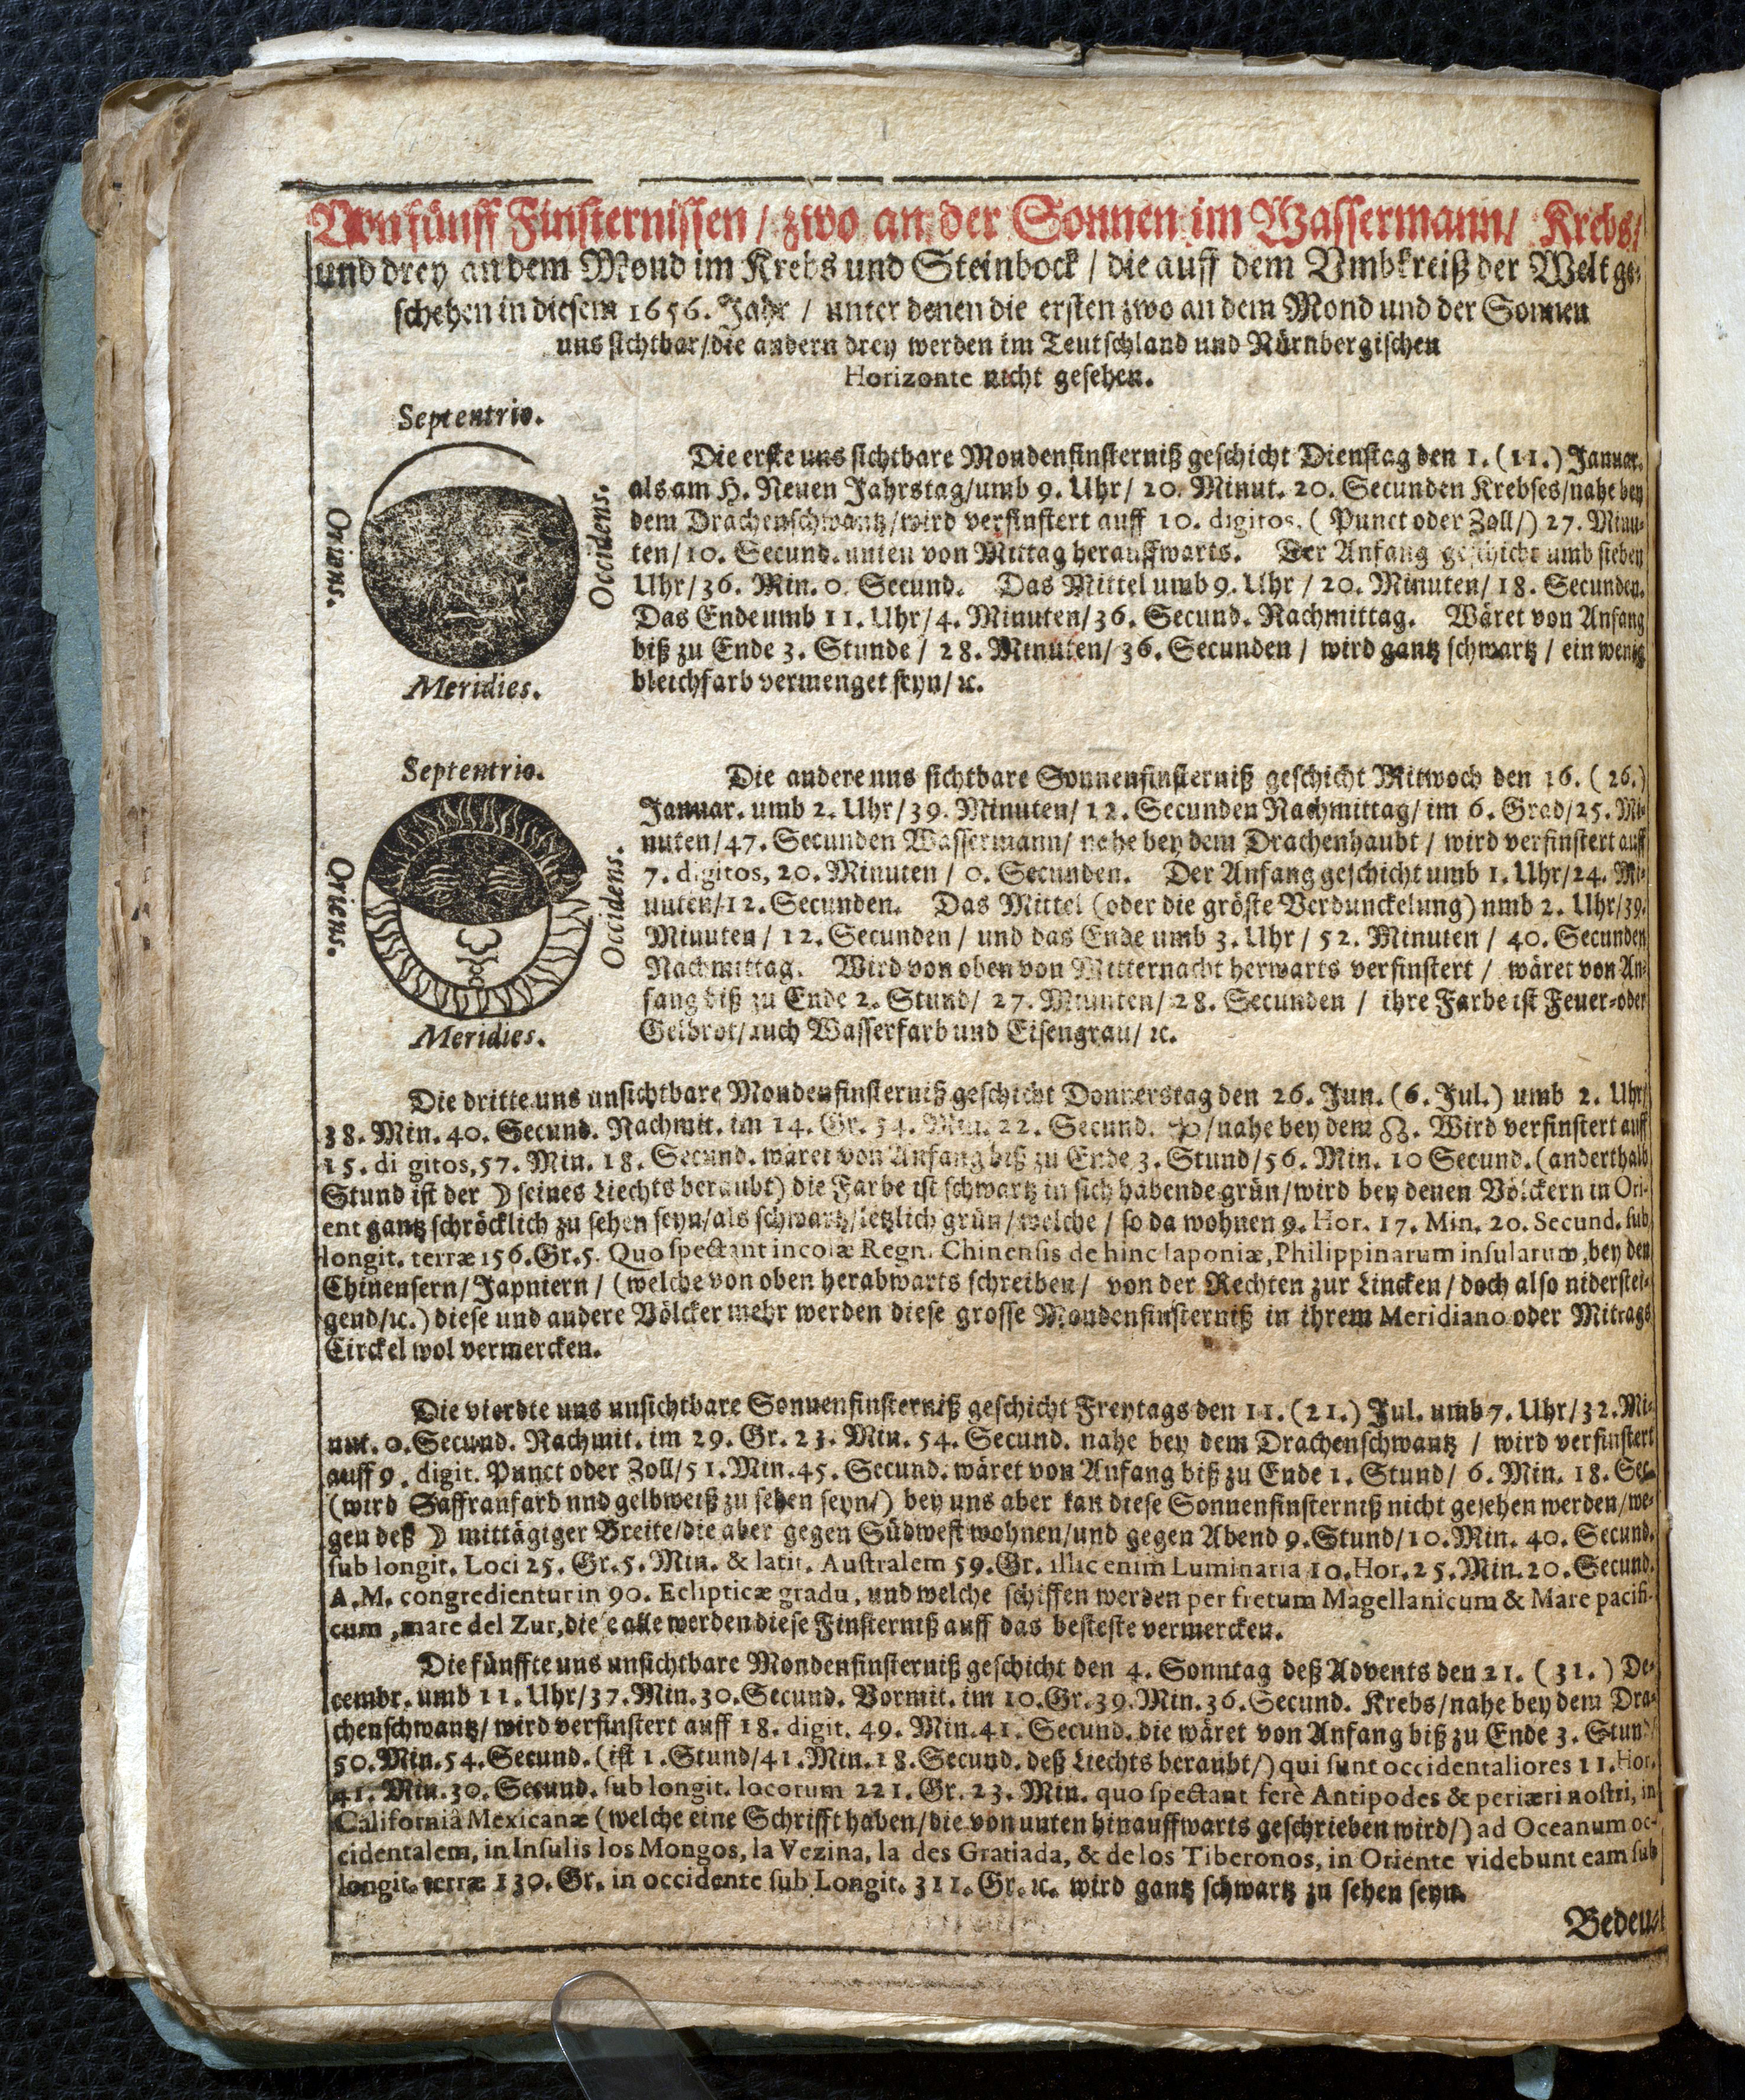 Von fünff Finsternissen / zwo an der Sonnen im Wassermann / Krebs /
und drey an dem Mond im Krebs und Steinbock / die auff dem Vmbkreiß der Welt ge-
schehen in diesem 1656. Jahr / unter denen die ersten zwo an dem Mond und der Sonnen
uns sichtbar / die andern drey werden im Teutschland und Nürnbergischen
Horizonte nicht gesehen.
Septentrio.
Oriens.
Occidens.
Meridies.
Die erste uns sichtbare Mondenfinsterniß geschicht Dienstag den 1. (11.) Januar.
als am H. Neuen Jahrstag / umb 9. Uhr / 20. Minut. 20. Secunden Krebses / nahe bey
dem Drachenschwantz / wird verfinstert auff 10. digitos, ( Punct oder Zoll /) 27. Minu-
ten / 10. Secund. unten von Mittag herauffwarts. Der Anfang geschicht umb sieben
Uhr / 36. Min. 0. Secund. Das Mittel umb 9. Uhr / 20. Minuten / 18. Secunden.
Das Ende umb 11. Uhr / 4. Minuten / 36. Secund. Nachmittag. Wäret von Anfang
biß zu Ende 3. Stunde / 28. Minuten / 36. Secunden / wird gantz schwartz / ein wenig
bleichfarb vermenget seyn / ꝛc.
Septentrio.
Oriens.
Occidens.
Meridies.
Die andere uns sichtbare Sonnenfinsterniß geschicht Mitwoch den 16. ( 26.)
Januar. umb 2. Uhr / 39. Minuten / 12. Secunden Nachmittag / im 6. Grad / 25. Mi-
nuten / 47. Secunden Wassermann / nahe bey dem Drachenhaubt / wird verfinstert auff
7. digitos, 20. Minuten / 0. Secunden. Der Anfang geschicht umb 1. Uhr / 24. Mi-
nuten / 12. Secunden. Das Mittel (oder die gröste Verdunckelung) umb 2. Uhr / 39.
Minuten / 12. Secunden / und das Ende umb 3. Uhr / 52. Minuten / 40. Secunden
Nachmittag. Wird von oben von Mitternacht herwarts verfinstert / wäret von An-
fang biß zu Ende 2. Stund / 27. Minuten / 28. Secunden / ihre Farbe ist Feuer- oder
Gelbrot / auch Wasserfarb und Eisengrau / ꝛc.
Die dritte uns unsichtbare Mondenfinsterniß geschicht Donnerstag den 26. Jun. (6. Jul.) umb 2. Uhr /
38. Min. 40. Secund. Nachmit. im 14. Gr. 54. Min. 22. Secund. ♑ / nahe bey dem ☊. Wird verfinstert auff
15. di gitos, 57. Min. 18. Secund. wäret von Anfang biß zu Ende 3. Stund / 56. Min. 10 Secund. (anderthalb
Stund ist der ☽ seines Liechts beraubt) die Farbe ist schwartz in sich habende grün / wird bey denen Völckern in Ori-
ent gantz schröcklich zu sehen seyn / als schwartz / letzlich grün / welche / so da wohnen 9. Hor. 17. Min. 20. Secund. sub
longit. terræ 156. Gr. 5. Quo spectant incolæ Regn. Chinensis de hinc Iaponiæ, Philippinarum insularum, bey den
Chinensern / Japniern / (welche von oben herabwarts schreiben / von der Rechten zur Lincken / doch also nidersteI-
gend / ꝛc.) diese und andere Völcker mehr werden diese grosse Mondenfinsterniß in ihrem Meridiano oder Mitrags
Circkel wol vermercken.
Die vierdte uns unsichtbare Sonnenfinsterniß geschicht Freytags den 11. (21.) Jul. umb 7. Uhr / 32. Mi-
nut. 0. Secund. Nachmit. im 29. Gr. 23. Min. 54. Secund. nahe bey dem Drachenschwantz / wird verfinstert
auff 9. digit. Punct oder Zoll / 51. Min. 45. Secund. wäret von Anfang biß zu Ende 1. Stund / 6. Min. 18. Sec.
(wird Saffranfarb und gelbweiß zu sehen seyn /) bey uns aber kan diese Sonnenfinsterniß nicht gesehen werden / we-
gen deß ☽ mittägiger Breite / die aber gegen Südwest wohnen / und gegen Abend 9. Stund / 10. Min. 40. Secund.
sub longit. Loci 25. Gr. 5. Min. & latit. Australem 59. Gr. illic enim Luminaria 10. Hor. 25. Min. 20. Secund.
A. M. congredientur in 90. Eclipticæ gradu, und welche schiffen werden per fretum Magellanicum & Mare pacifi-
cum, mare del Zur, diese alle werden diese Finsterniß auff das besteste vermercken.
Die fünffte uns unsichtbare Mondenfinsterniß geschicht den 4. Sonntag deß Advents den 21. ( 31. ) De-
cembr. umb 11. Uhr / 37. Min. 30. Secund. Vormit. im 10. Gr. 39. Min. 36. Secund. Krebs / nahe bey dem Dra-
chenschwantz / wird verfinstert auff 18. digit. 49. Min. 41. Secund. die wäret von Anfang biß zu Ende 3. Stund /
50. Min. 54. Secund. (ist 1. Stund / 41. Min. 18. Secund. deß Liechts beraubt /) qui sunt occidentaliores 11. Hor.
41. Min. 30. Secund. sub longit. locorum 221. Gr. 23. Min. quo spectant ferè Antipodes & periæri nostri, in
Californiâ Mexicanæ (welche eine Schrifft haben / die von unten hinauffwarts geschrieben wird /) ad Oceanum oc-
cidentalem, in Insulis los Mongos, la Vezina, la des Gratiada, & de los Tiberonos, in Oriente videbunt eam sub
longit. terræ 130. Gr. in occidente sub Longit. 311. Gr. ꝛc. wird gantz schwartz zu sehen seyn.
Bedeu-